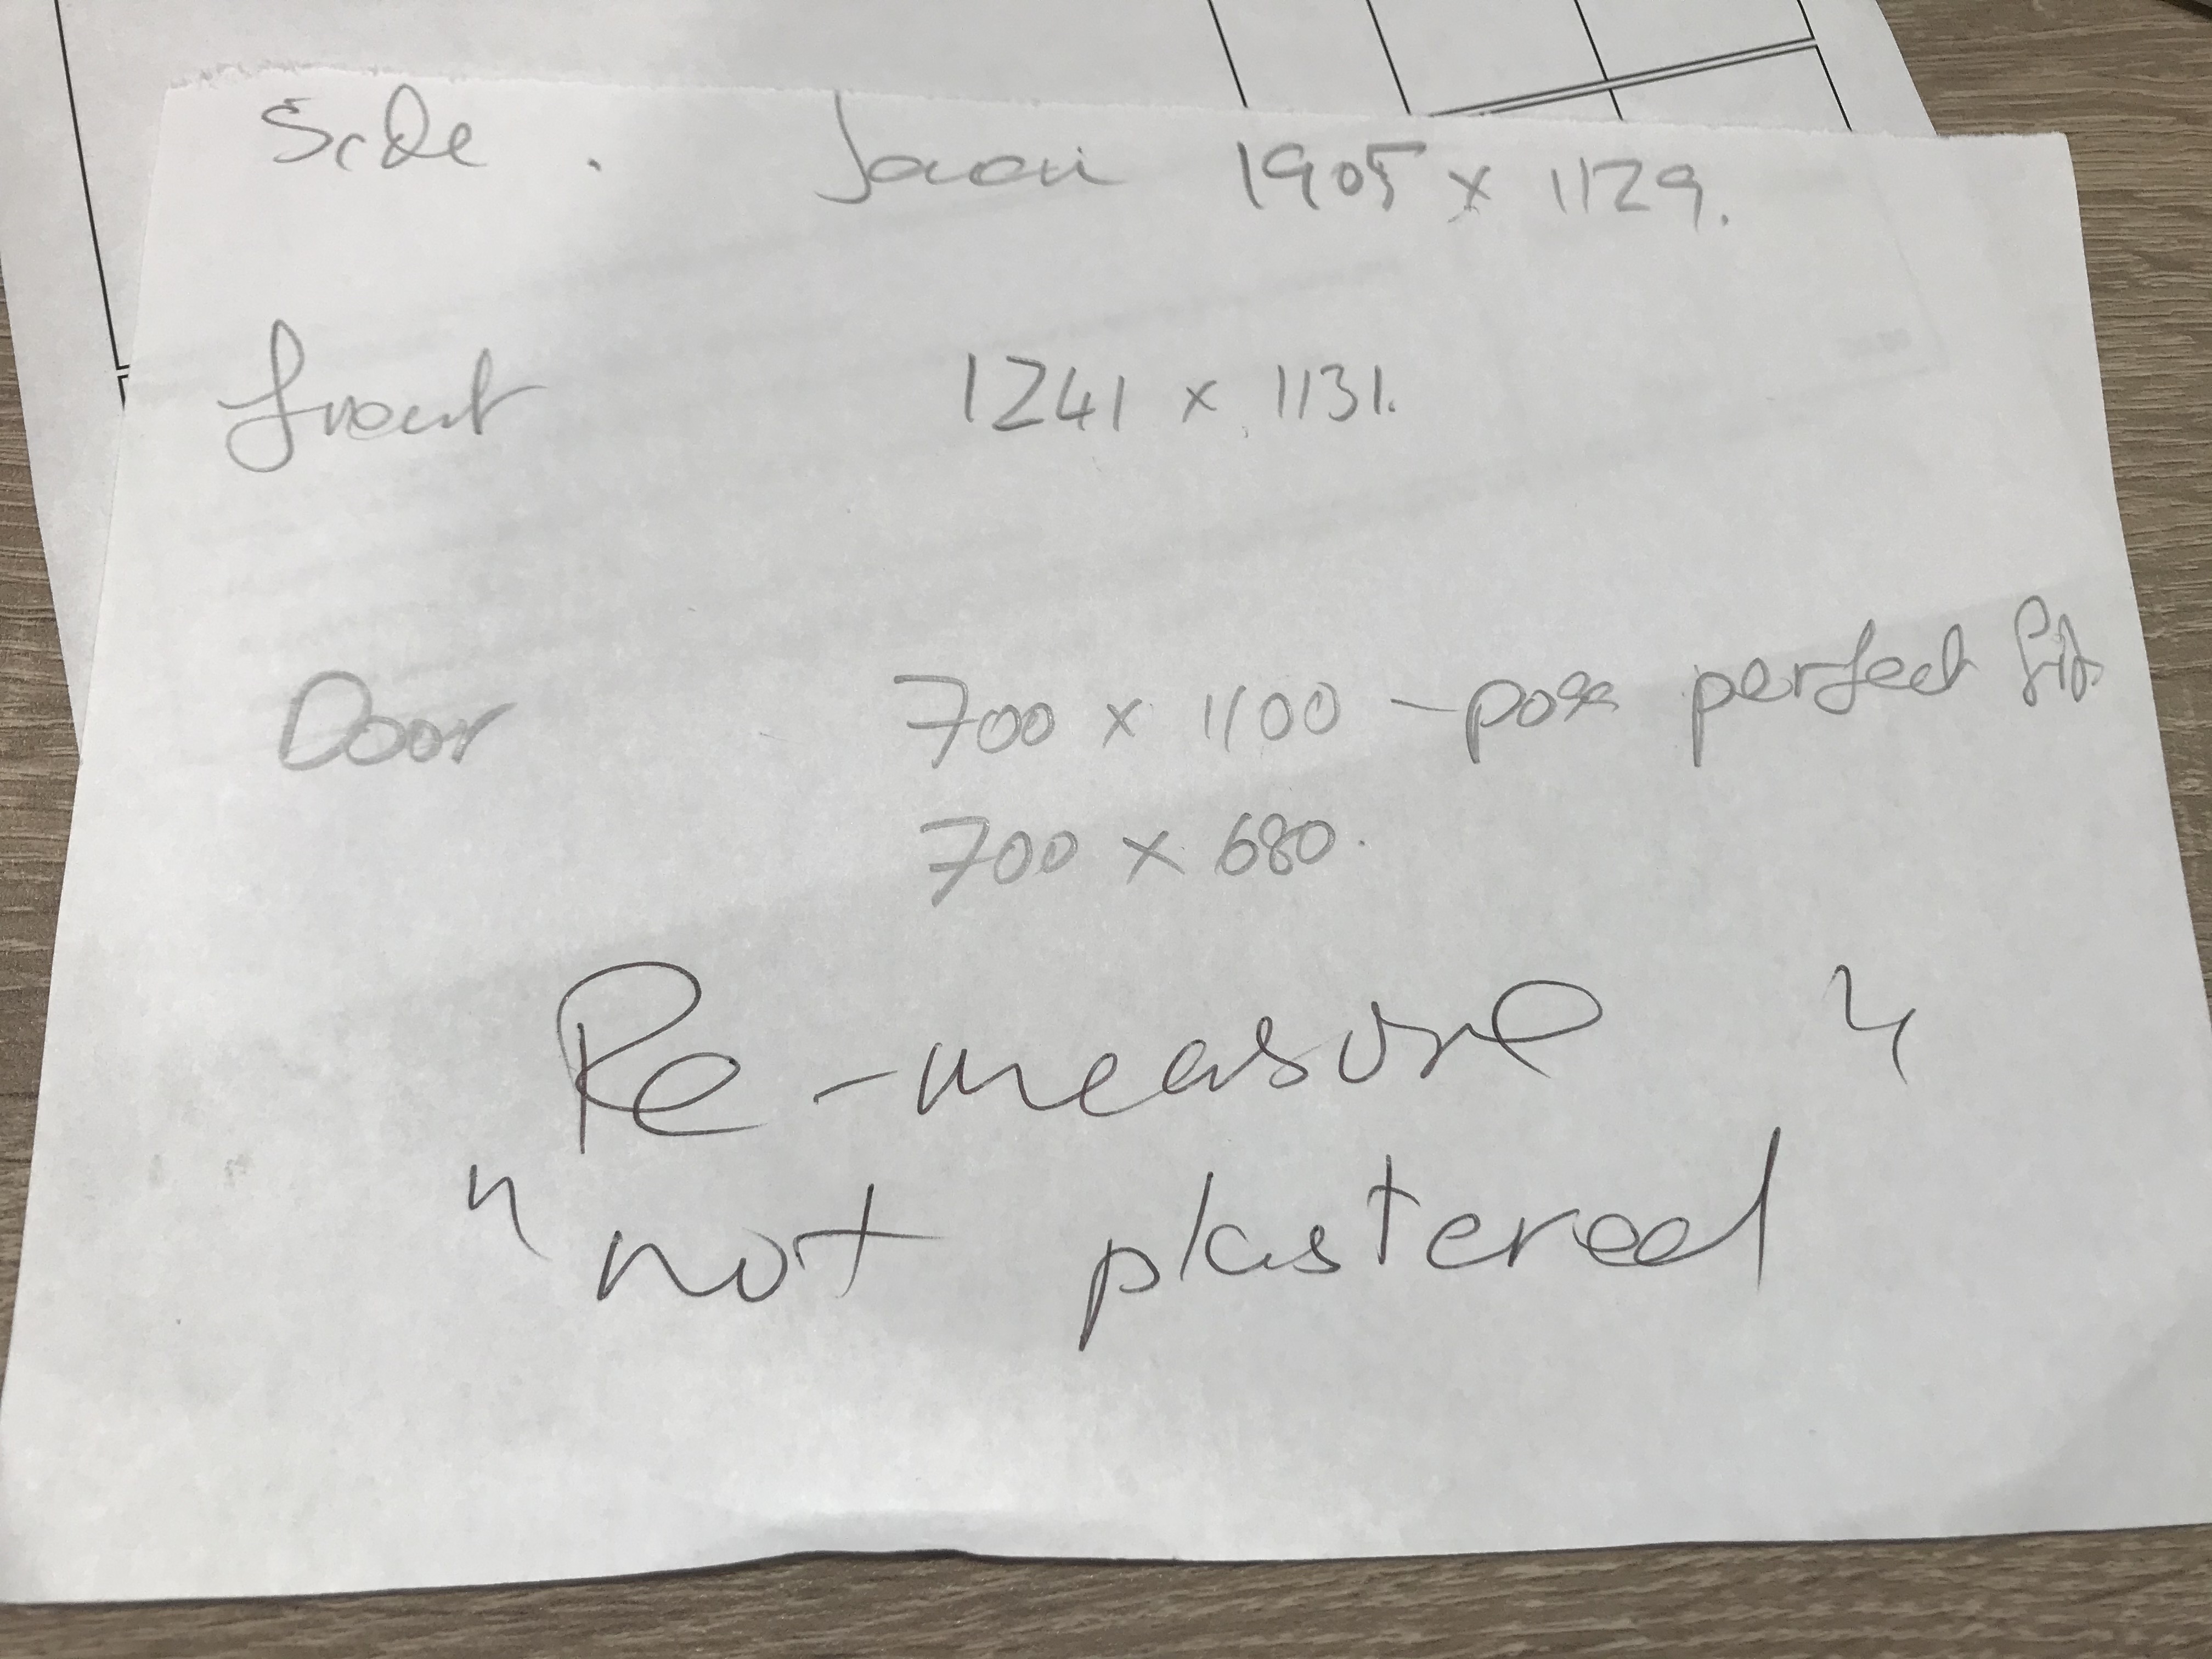 Side . 1905 x 1129.
front 1241 x 1131.
Door 700 x 1100 - poss perfect fit
700 x 680.
Re-measure "
" not plastered